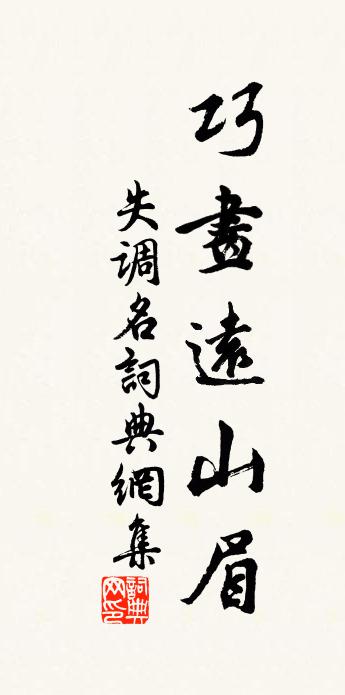 巧畫遠山眉
失調名詞典網集
詞典網印